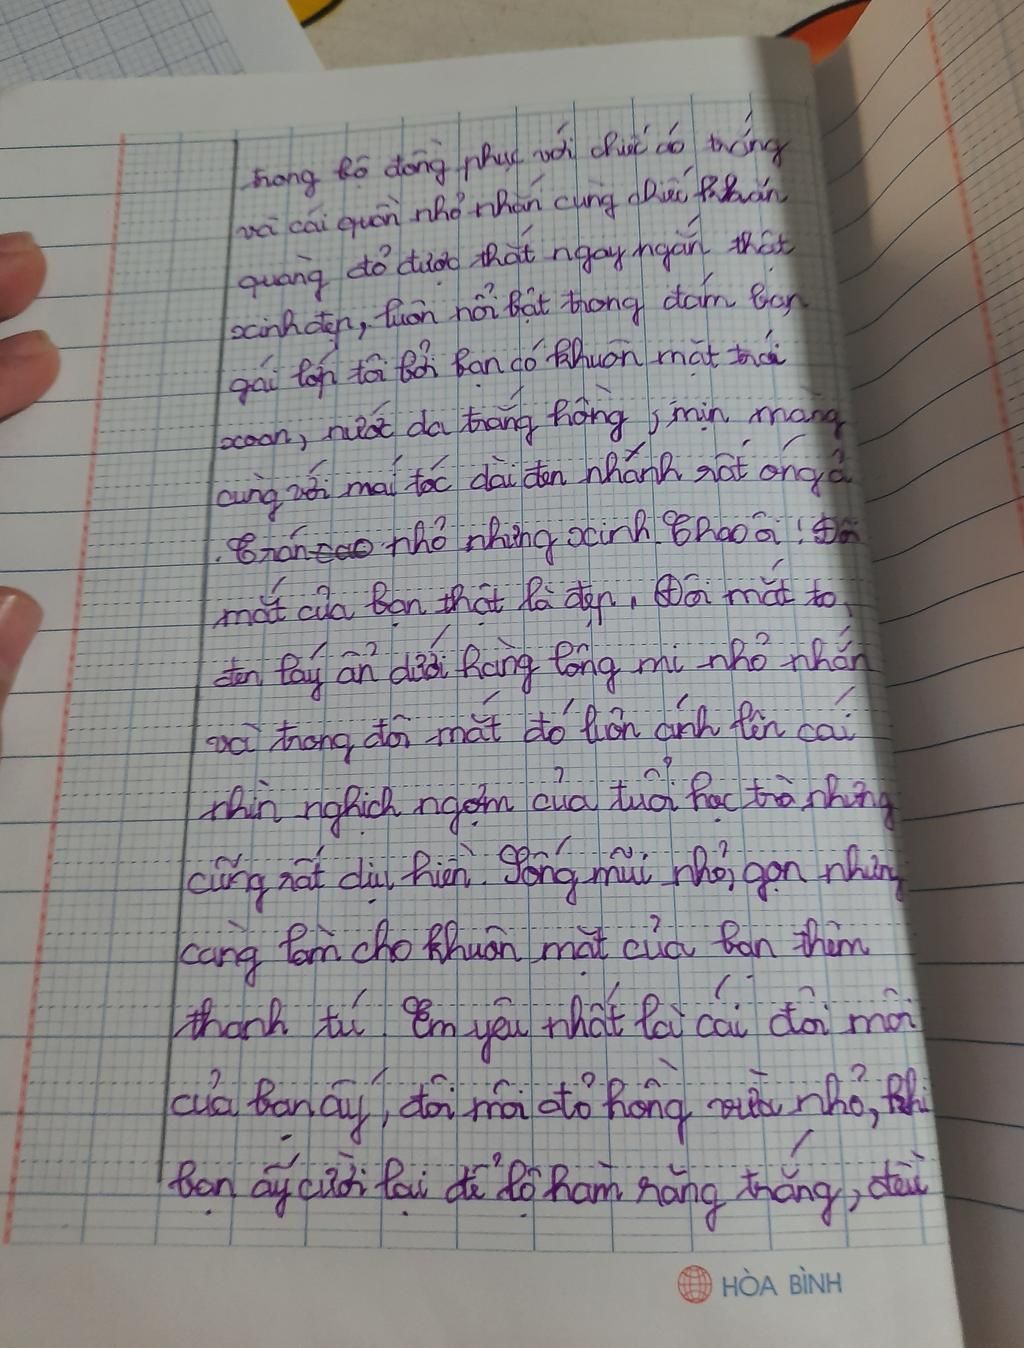 trong bộ đồng phục với chiếc áo trắng
và cái quần nhỏ nhắn cùng chiếc khăn
quàng đỏ được thắt ngay ngắn thật
xinh đẹp, luôn nổi bật trong đám bạn
gái lớp tôi bởi bạn có khuôn mặt trái
xoan, nước da trắng hồng, mịn màng
cùng với mái tóc dài đen nhánh rất óng ả
. Trán cao nhỏ nhưng xinh. Chao ôi! Đôi
mắt của bạn thật là đẹp. Đôi mắt to,
đen láy ẩn dưới hàng lông mi nhỏ nhắn
và trong đôi mắt đó luôn ánh lên cái
nhìn nghịch ngợm của tuổi học trò nhưng
cũng rất dịu hiền. Sống mũi nhỏ, gọn nhưng
càng làm cho khuôn mặt của bạn thêm
thanh tú. Em yêu nhất là cái đôi môi
của bạn ấy, đôi môi đỏ hồng vừa nhỏ, khi
bạn ấy cười lại để lộ hàm răng trắng, đều
HÒA BÌNH